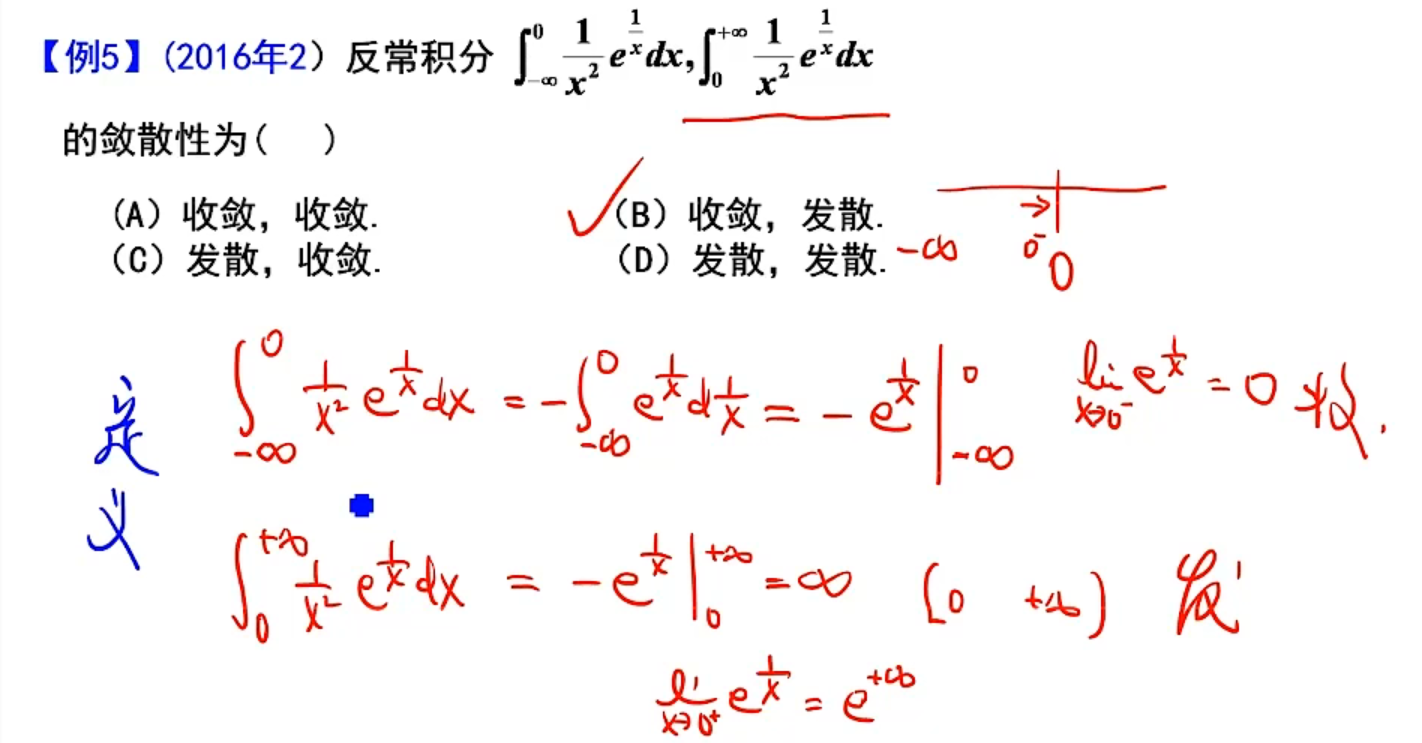 【例5】(2016年2) 反常积分 ∫_{-∞}^{0} 1/x² e^{1/x} dx, ∫_{0}^{+∞} 1/x² e^{1/x} dx
的敛散性为( )
(A) 收敛, 收敛. (B) 收敛, 发散.
(C) 发散, 收敛. (D) 发散, 发散.
-∞ 0⁻ 0
定义
∫_{-∞}^{0} 1/x² e^{1/x} dx = -∫_{-∞}^{0} e^{1/x} d 1/x = -e^{1/x} |_{-∞}^{0} lim_{x→0⁻} e^{1/x} = 0 收.
∫_{0}^{+∞} 1/x² e^{1/x} dx = -e^{1/x} |_{0}^{+∞} = ∞ [0 +∞) 发
lim_{x→0⁺} e^{1/x} = e^{+∞}